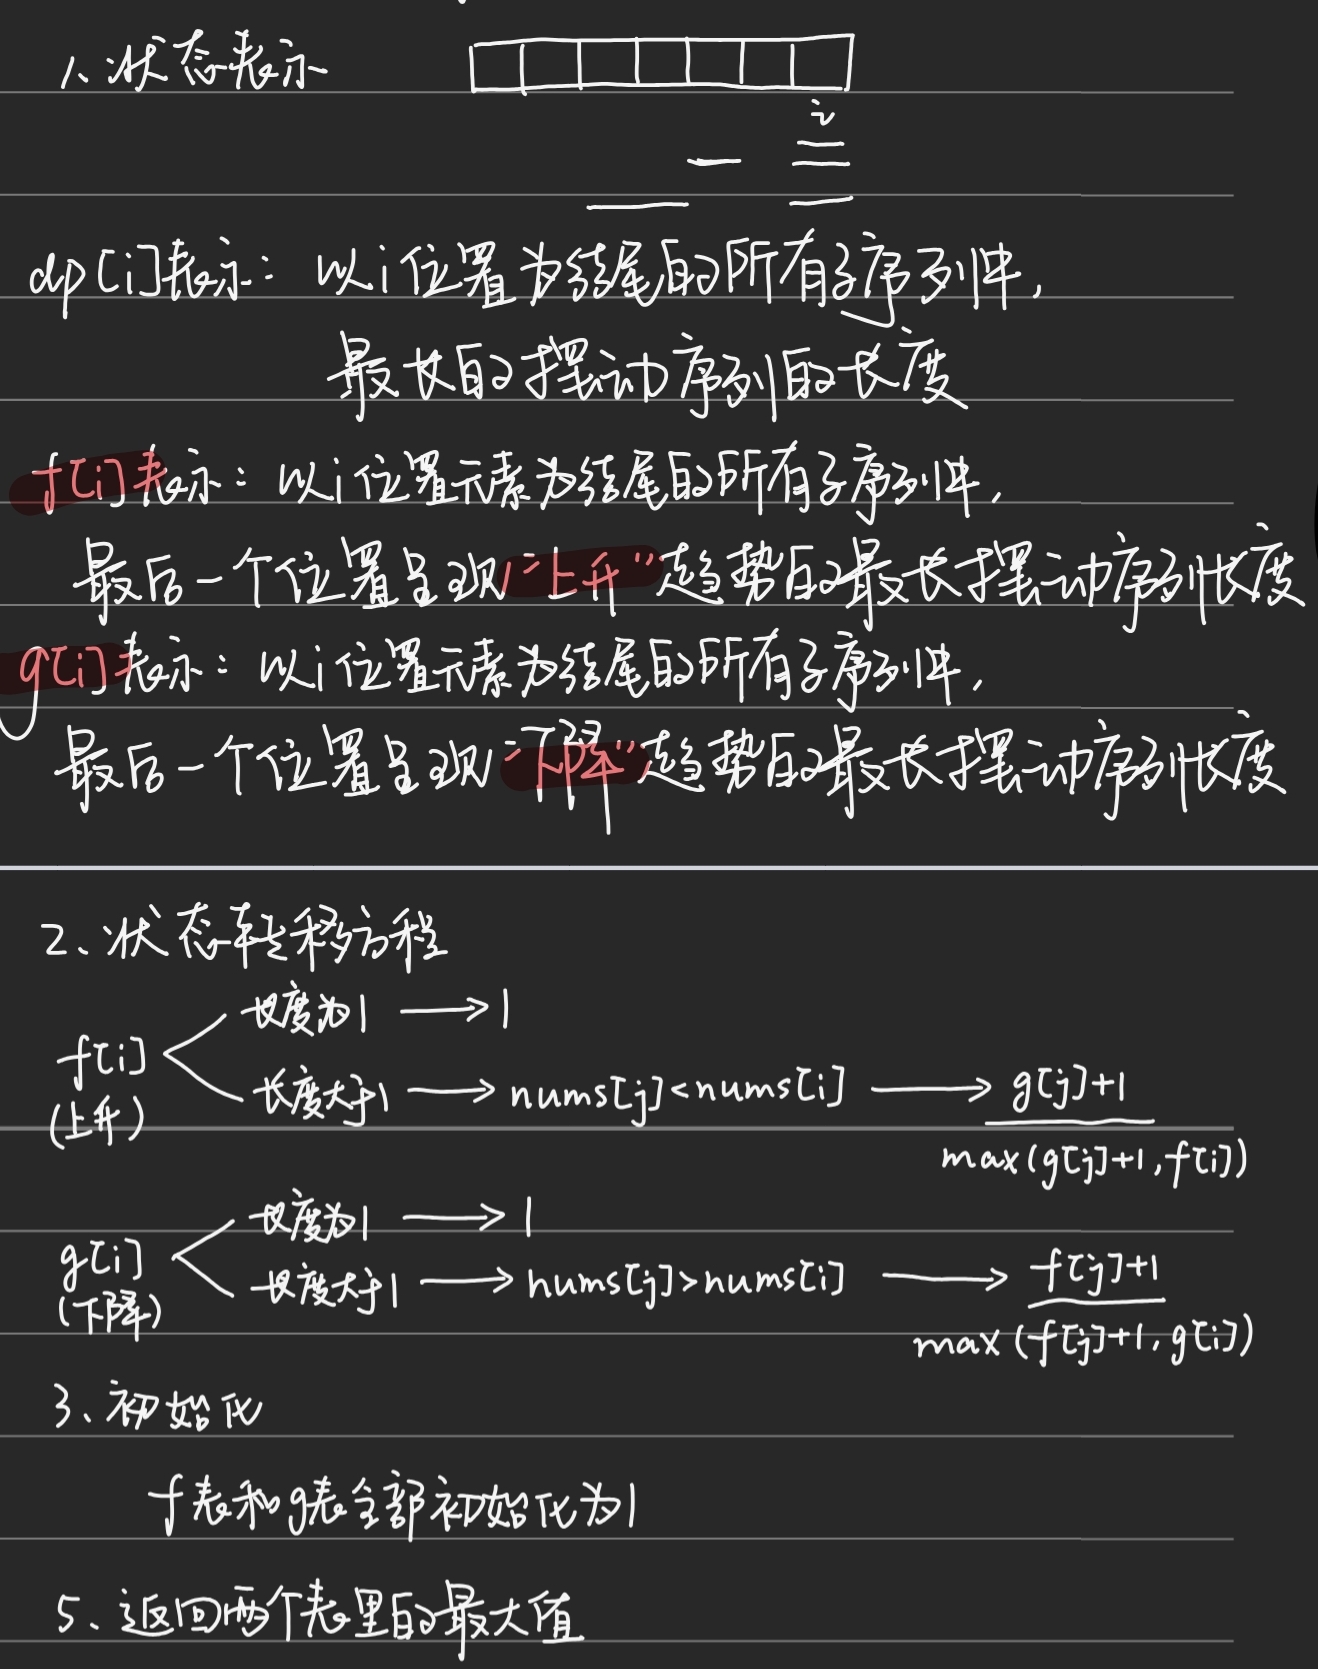 1、状态表示
i
dp[i]表示：以i位置为结尾的所有子序列中，
最长的摆动序列的长度
f[i]表示：以i位置元素为结尾的所有子序列中，
最后一个位置呈现"上升"趋势的最长摆动序列长度
g[i]表示：以i位置元素为结尾的所有子序列中，
最后一个位置呈现"下降"趋势的最长摆动序列长度
2、状态转移方程
长度为1 → 1
f[i]
(上升)
长度大于1 → nums[j]<nums[i] → g[j]+1
max(g[j]+1,f[i])
长度为1 → 1
g[i]
(下降)
长度大于1 → nums[j]>nums[i] → f[j]+1
max(f[j]+1,g[i])
3、初始化
f表和g表全部初始化为1
5、返回两个表里的最大值